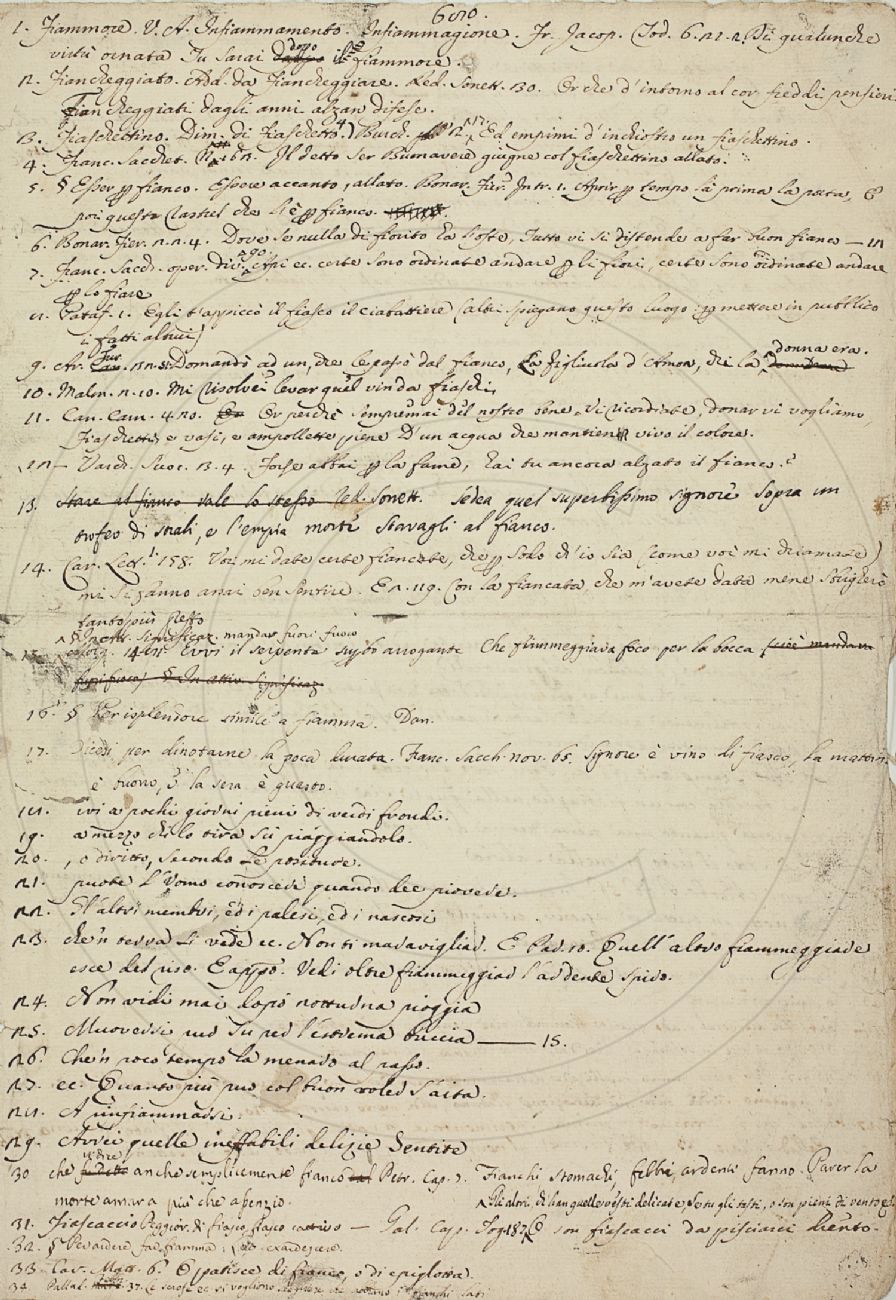 680.
1. Fiammore. V. A. Infiammamento. Infiammagione. Fr. Jacop. Tod. 6. 21. 2. Di qualunche
virtù ornata Tu sarai dopo il fiammore.
2. Fiancheggiato. Add. da Fiancheggiare. Red. Sonett. 30. Or che d'intorno al cor freddi pensieri
Fiancheggiati dagli anni alzan difese.
3. Fiaschettino. Dim. di Fiaschetto. Burch. 2. 17. Ed empimi d'inchiostro un fiaschettino.
4. Franc. Sacchet. Il detto Ser Buonavere giugne col fiaschettino allato.
5. § Esser p fianco. Essere accanto, allato. Bonar. Fier. Intr. 1. Aprir p tempo la prima la porta, E
poi questa Castiel che l'è p fianco.
6. Bonar. Fier. 2. 2. 4. Dove se nulla di fiorito ha l'oste, Tutto vi si distende a far buon fianco — 12
7. Franc. Sacch. oper. div. 90. Api ec. certe sono ordinate andare p li fiori, certe sono ordinate andare
p lo fiare
8. Pataf. 1. Egli t'appiccò il fiasco il ciabattiere (altri spiegano questo luogo p mettere in pubblico
i fatti altrui)
9. Ar. Fur. Domandò ad un, che le passò dal fianco, La figliuola d'Amon, chi la donna era.
10. Malm. 2. 10. Mi risolvei levar quel vin da fiaschi.
11. Can. Carn. 420. Or perchè sempremai del nostro bene Vi ricordiate, donar vi vogliamo
Fiaschetti, e vasi, e ampollette piene D'un acqua che mantien vivo il colore.
12 — Varch. Suoc. 3. 4. Forse abbai p la fame, hai tu ancora alzato il fianco?
13. Stare al fianco vale lo stesso Red. Sonett. Sedea quel superbissimo signore Sopra un
trofeo di strali, e l'empia morte Stavagli al fianco.
14. Car. Lett. 158. Voi mi date certe fiancate, che p solo ch'io sia (come voi mi chiamate)
mi si fanno assai ben sentire. E 2. 119. Con la fiancata, che m'avete data mene sbrigherò
tanto più presto
§ In att. significaz. mandar fuori fuoco
15. Evvi il serpente arrogante Che fiammeggiava foco per la bocca (cioè mandava
fuori fuoco) § In attiv. significaz.
16. § Per isplendore simile a fiamma. Dan.
17. Dicesi per dinotarne la poca durata. Franc. Sacch. nov. 65. Signore è vino di fiasco, la mattina
è buono, e la sera è guasto.
18. ivi a pochi giorni pieni di verdi frondi.
19. a mezzo chi lo tira su piaggiandolo.
20. , o diritto, secondo Le positure.
21. puote l'Uomo conoscere quando dee piovere.
22. Gl'altri membri, ed i palesi, ed i nascosi
23. che'n terra si vede ec. Non ti maravigliar. E Par. 10. Quell'altro fiammeggiare
esce del riso. E appò. Vedi oltre fiammeggiar l'ardente spiro.
24. Non vidi mai dopo notturna pioggia
25. Muoversi pur su per l'estrema buccia — 15.
26. Che'n poco tempo la menaro al passo.
27. ec. Quanto più può col buon voler s'aita.
28. A infiammarsi.
29. Avrei quelle ineffabili delizie Sentite
30 che anche semplicemente fianco Petr. Cap. 7. Fianchi stomachi, febbri ardenti fanno Parer la
morte amara più che assenzio. Gli altri, ch'han quelle vesti delicate, Se tu gli tasti, o son pieni di vento ec
31. Fiascaccio Peggior. di fiasco, fiasco cattivo — Gal. Cap. Tog. 187 O son fiascacci da pisciarvi drento.
32. § Per ardere, far fiamma; exardescere.
33. Cav. Matt. 6. O patisce di fianco, o di epiglotta.
34. Pallad. 37. Le scrofe ec. si vogliono